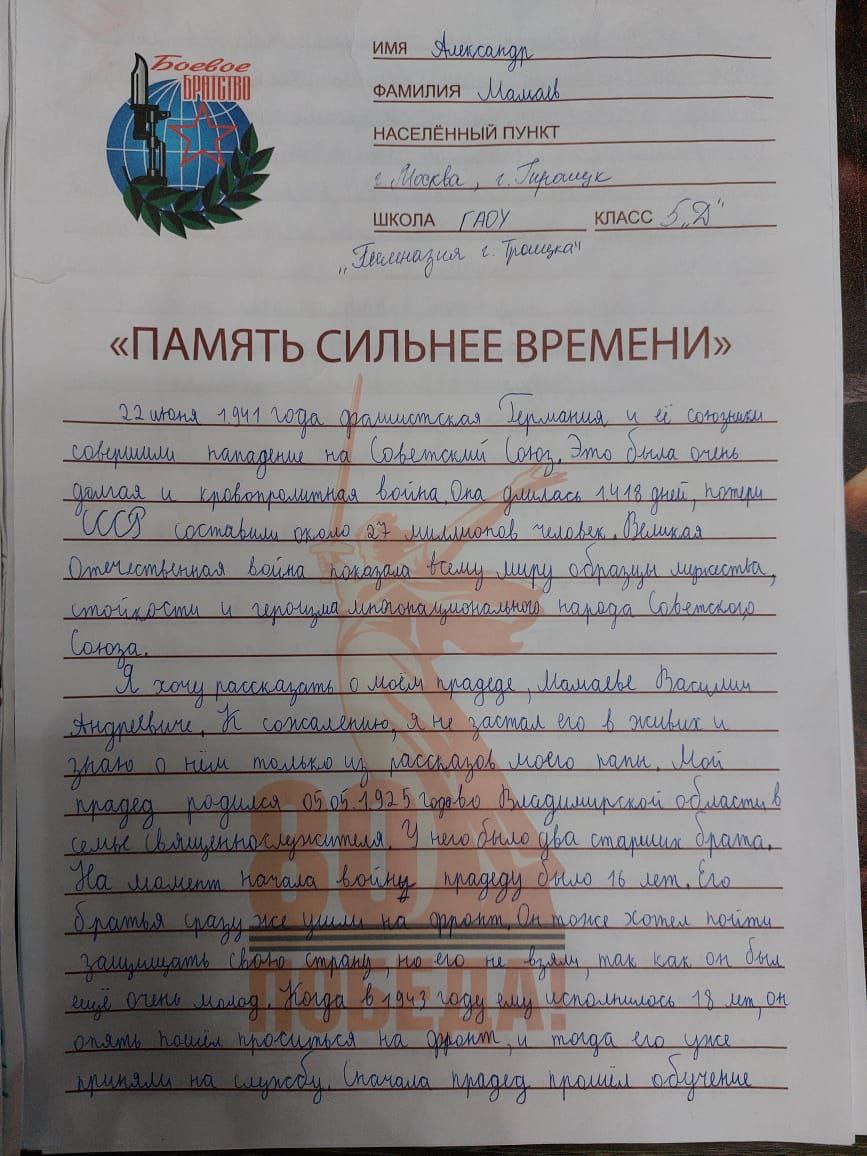 Боевое
БРАТСТВО
ИМЯ Александр
ФАМИЛИЯ Мамаев
НАСЕЛЁННЫЙ ПУНКТ
г. Москва, г. Троицк
ШКОЛА ГАОУ КЛАСС 5 „Д"
„Гимназия г. Троицка"
«ПАМЯТЬ СИЛЬНЕЕ ВРЕМЕНИ»
22 июня 1941 года фашистская Германия и её союзники
совершили нападение на Советский Союз. Это была очень
долгая и кровопролитная война. Она длилась 1.418 дней, потери
СССР составили около 27 миллионов человек. Великая
Отечественная война показала всему миру образцы мужества,
стойкости и героизма многонационального народа Советского
Союза.
Я хочу рассказать о моём прадеде, Мамаеве Василии
Андреевиче. К сожалению, я не застал его в живых и
знаю о нём только из рассказов моего папы. Мой
прадед родился 05.05.1925 года во Владимирской области в
семье священнослужителя. У него было два старших брата.
На момент начала войны прадеду было 16 лет. Его
братья сразу же ушли на фронт. Он тоже хотел пойти
защищать свою страну, но его не взяли, так как он был
ещё очень молод. Когда в 1943 году ему исполнилось 18 лет, он
опять пошёл проситься на фронт, и тогда его уже
приняли на службу. Сначала прадед прошёл обучение
80
ПОБЕДА!